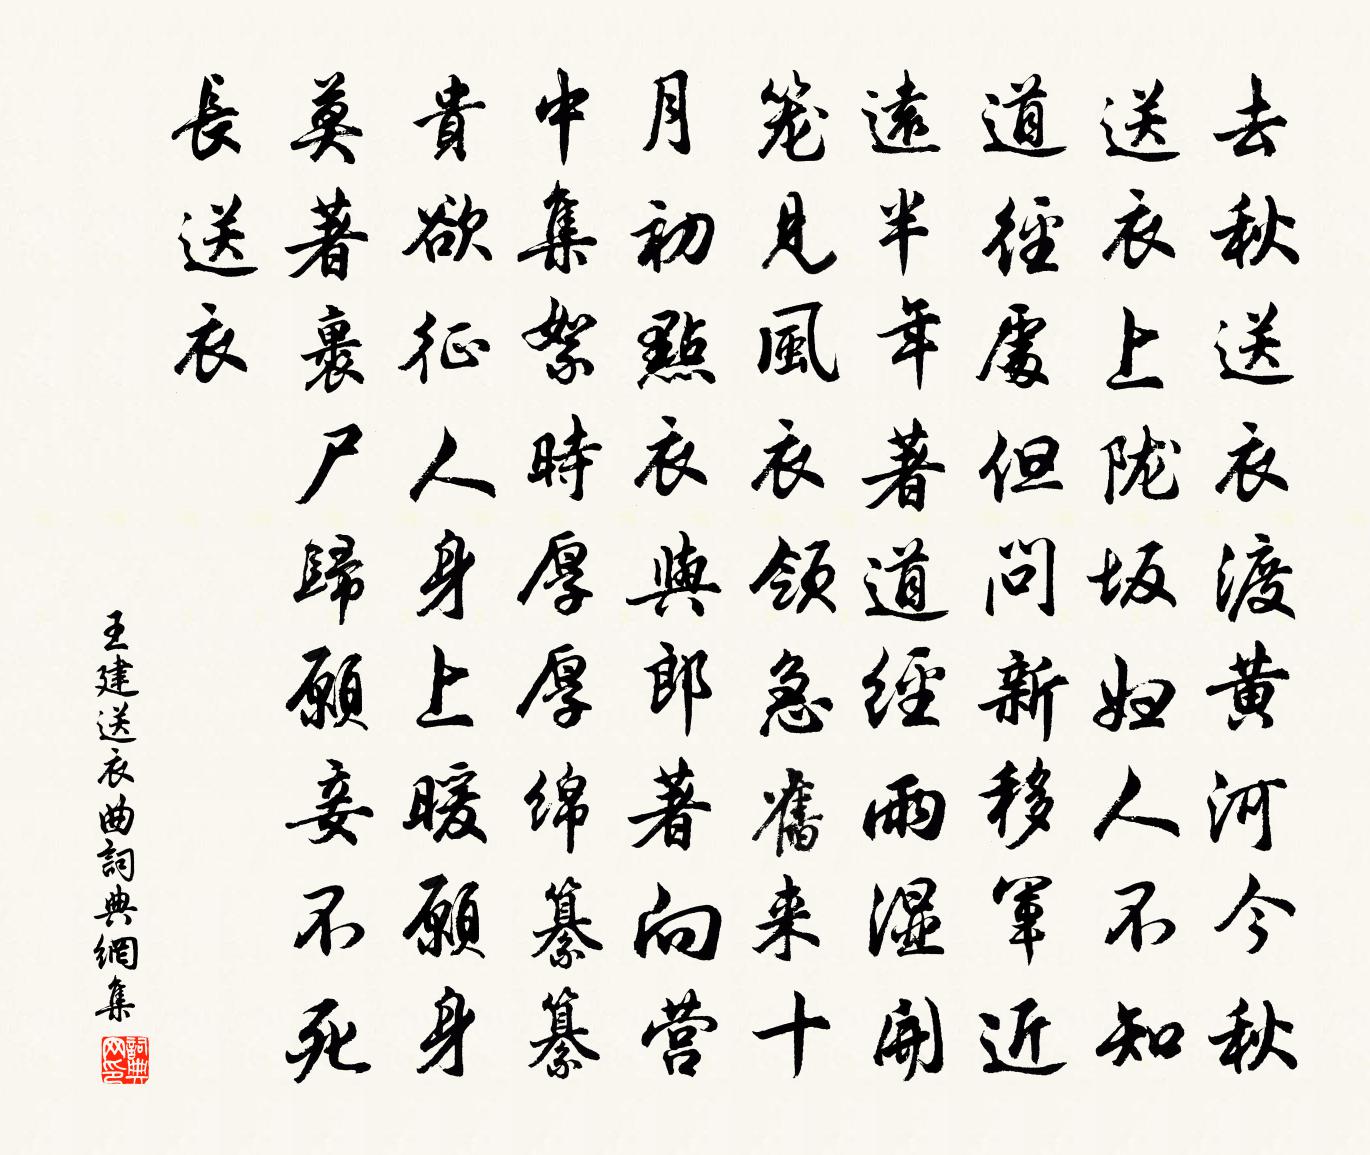 去秋送衣渡黄河今秋
送衣上陇坂妇人不知
道徑處但問新移軍近
遠半年著道經雨濕開
笼見風衣領急舊来十
月初點衣與郎著向营
中集絮時厚厚绵纂纂
貴欲征人身上暖願身
莫著裹尸歸願妾不死
長送衣
王建送衣曲詞典網集
詞典网印